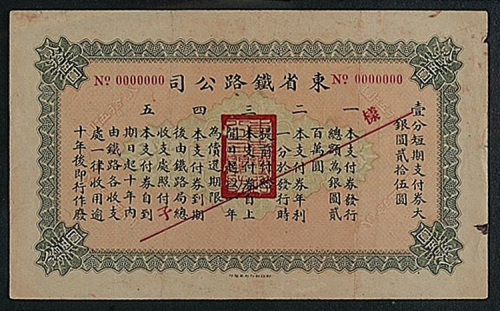 東省鐵路公司
Nº 0000000
Nº 0000000
壹分短期支付券大
銀圓貳拾伍圓
一 本支付券發行
總額為銀圓貳
百萬圓
二 本支付券年利
一分於發行時
提前付給
三 本支付券自上
開日起以年
為償還期限
四 本支付券到期
後由鐵路局總
收支處照付
五 本支付券自到
期日起十年內
由鐵路各收支
處一律收用逾
十年後即行作廢
樣